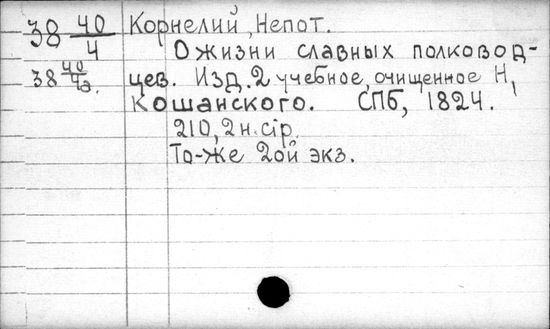 38 40/4 Корнелий, Непот.
О жизни славных полковод-
38 40/4а. цев. Изд. 2 учебное, очищенное Н,
Кошанского. СПб, 1824.
210, 2 н. стр.
То-же 2ой экз.